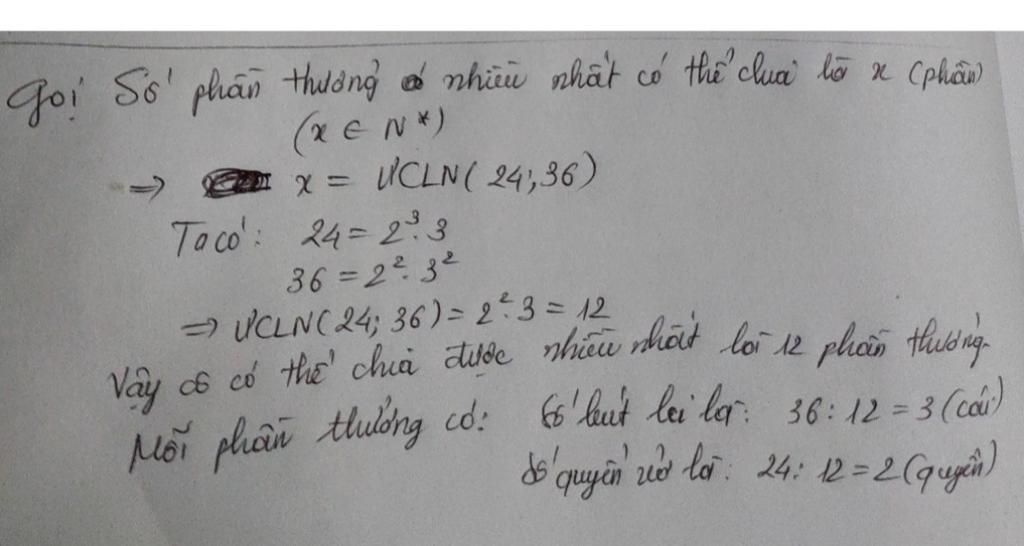 Gọi Số phần thưởng nhiều nhất có thể chia là x (phần)
(x ∈ N*)
=> x = ƯCLN(24;36)
Ta có: 24 = 2³.3
36 = 2².3²
=> ƯCLN(24; 36) = 2².3 = 12
Vậy cô có thể chia được nhiều nhất là 12 phần thưởng.
Mỗi phần thưởng có: Số bút bi là: 36 : 12 = 3 (cái)
Số quyển vở là: 24: 12 = 2 (quyển)